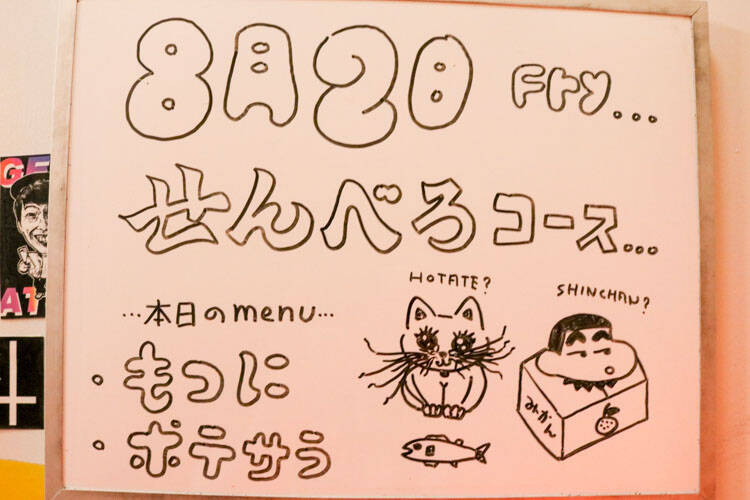 8月20 Fry...
せんべろコース...
HOTATE?
SHINCHAN?
...本日のmenu...
・もつに
・ポテサラ
みかん
GE
AT